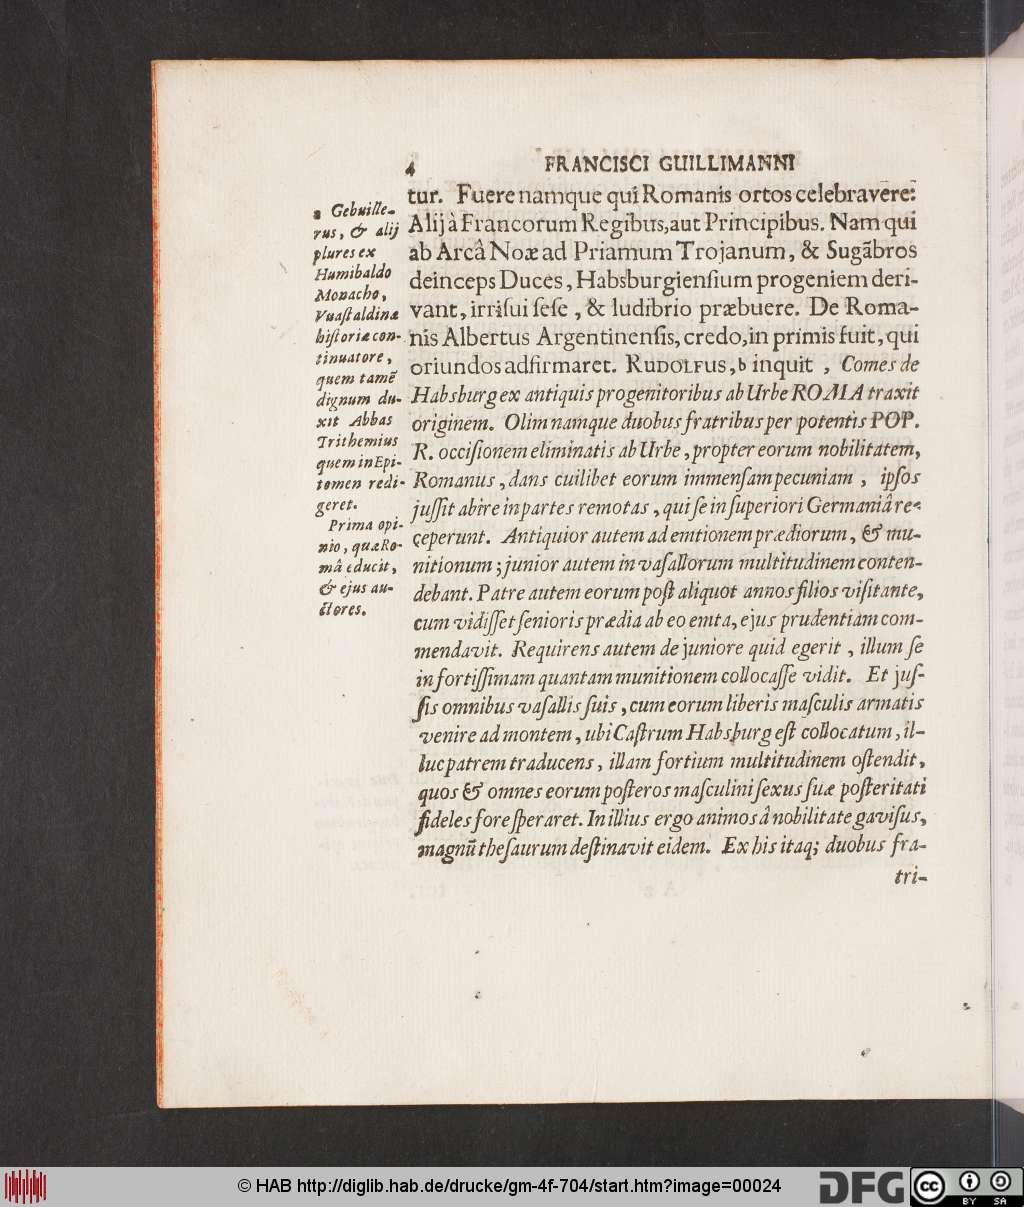 4 FRANCISCI GUILLIMANNI
tur. Fuere namque qui Romanis ortos celebravêre:
Alij à Francorum Regibus, aut Principibus. Nam qui
ab Arcâ Noæ ad Priamum Trojanum, & Sugãbros
deinceps Duces, Habsburgiensium progeniem deri-
vant, irrisui sese, & ludibrio præbuere. De Roma-
nis Albertus Argentinensis, credo, in primis fuit, qui
oriundos adfirmaret. RUDOLFUS, b inquit, Comes de
Habsburg ex antiquis progenitoribus ab Urbe ROMA traxit
originem. Olim namque duobus fratribus per potentis POP.
R. occisionem eliminatis ab Urbe, propter eorum nobilitatem,
Romanus, dans cuilibet eorum immensam pecuniam, ipsos
jussit abire in partes remotas, qui se in superiori Germaniâ re-
ceperunt. Antiquior autem ad emtionem prædiorum, & mu-
nitionum; junior autem in vasallorum multitudinem conten-
debant. Patre autem eorum post aliquot annos filios visitante,
cum vidisset senioris prædia ab eo emta, ejus prudentiam com-
mendavit. Requirens autem de juniore quid egerit, illum se
in fortissimam quantam munitionem collocasse vidit. Et jus-
sis omnibus vasallis suis, cum eorum liberis masculis armatis
venire ad montem, ubi Castrum Habsburg est collocatum, il-
luc patrem traducens, illam fortium multitudinem ostendit,
quos & omnes eorum posteros masculini sexus suæ posteritati
fideles fore speraret. In illius ergo animos â nobilitate gavisus,
magnũ thesaurum destinavit eidem. Ex his itaq; duobus fra-
tri-
a Gebuille-
rus, & alij
plures ex
Humibaldo
Monacho,
Vuastaldinæ
historiæ con-
tinuatore,
quem tamẽ
dignum du-
xit Abbas
Trithemius
quem in Epi-
tomen redi-
geret.
Prima opi-
nio, quæ Ro-
mâ educit,
& ejus au-
ctores.
© HAB http://diglib.hab.de/drucke/gm-4f-704/start.htm?image=00024
DFG
cc
BY SA